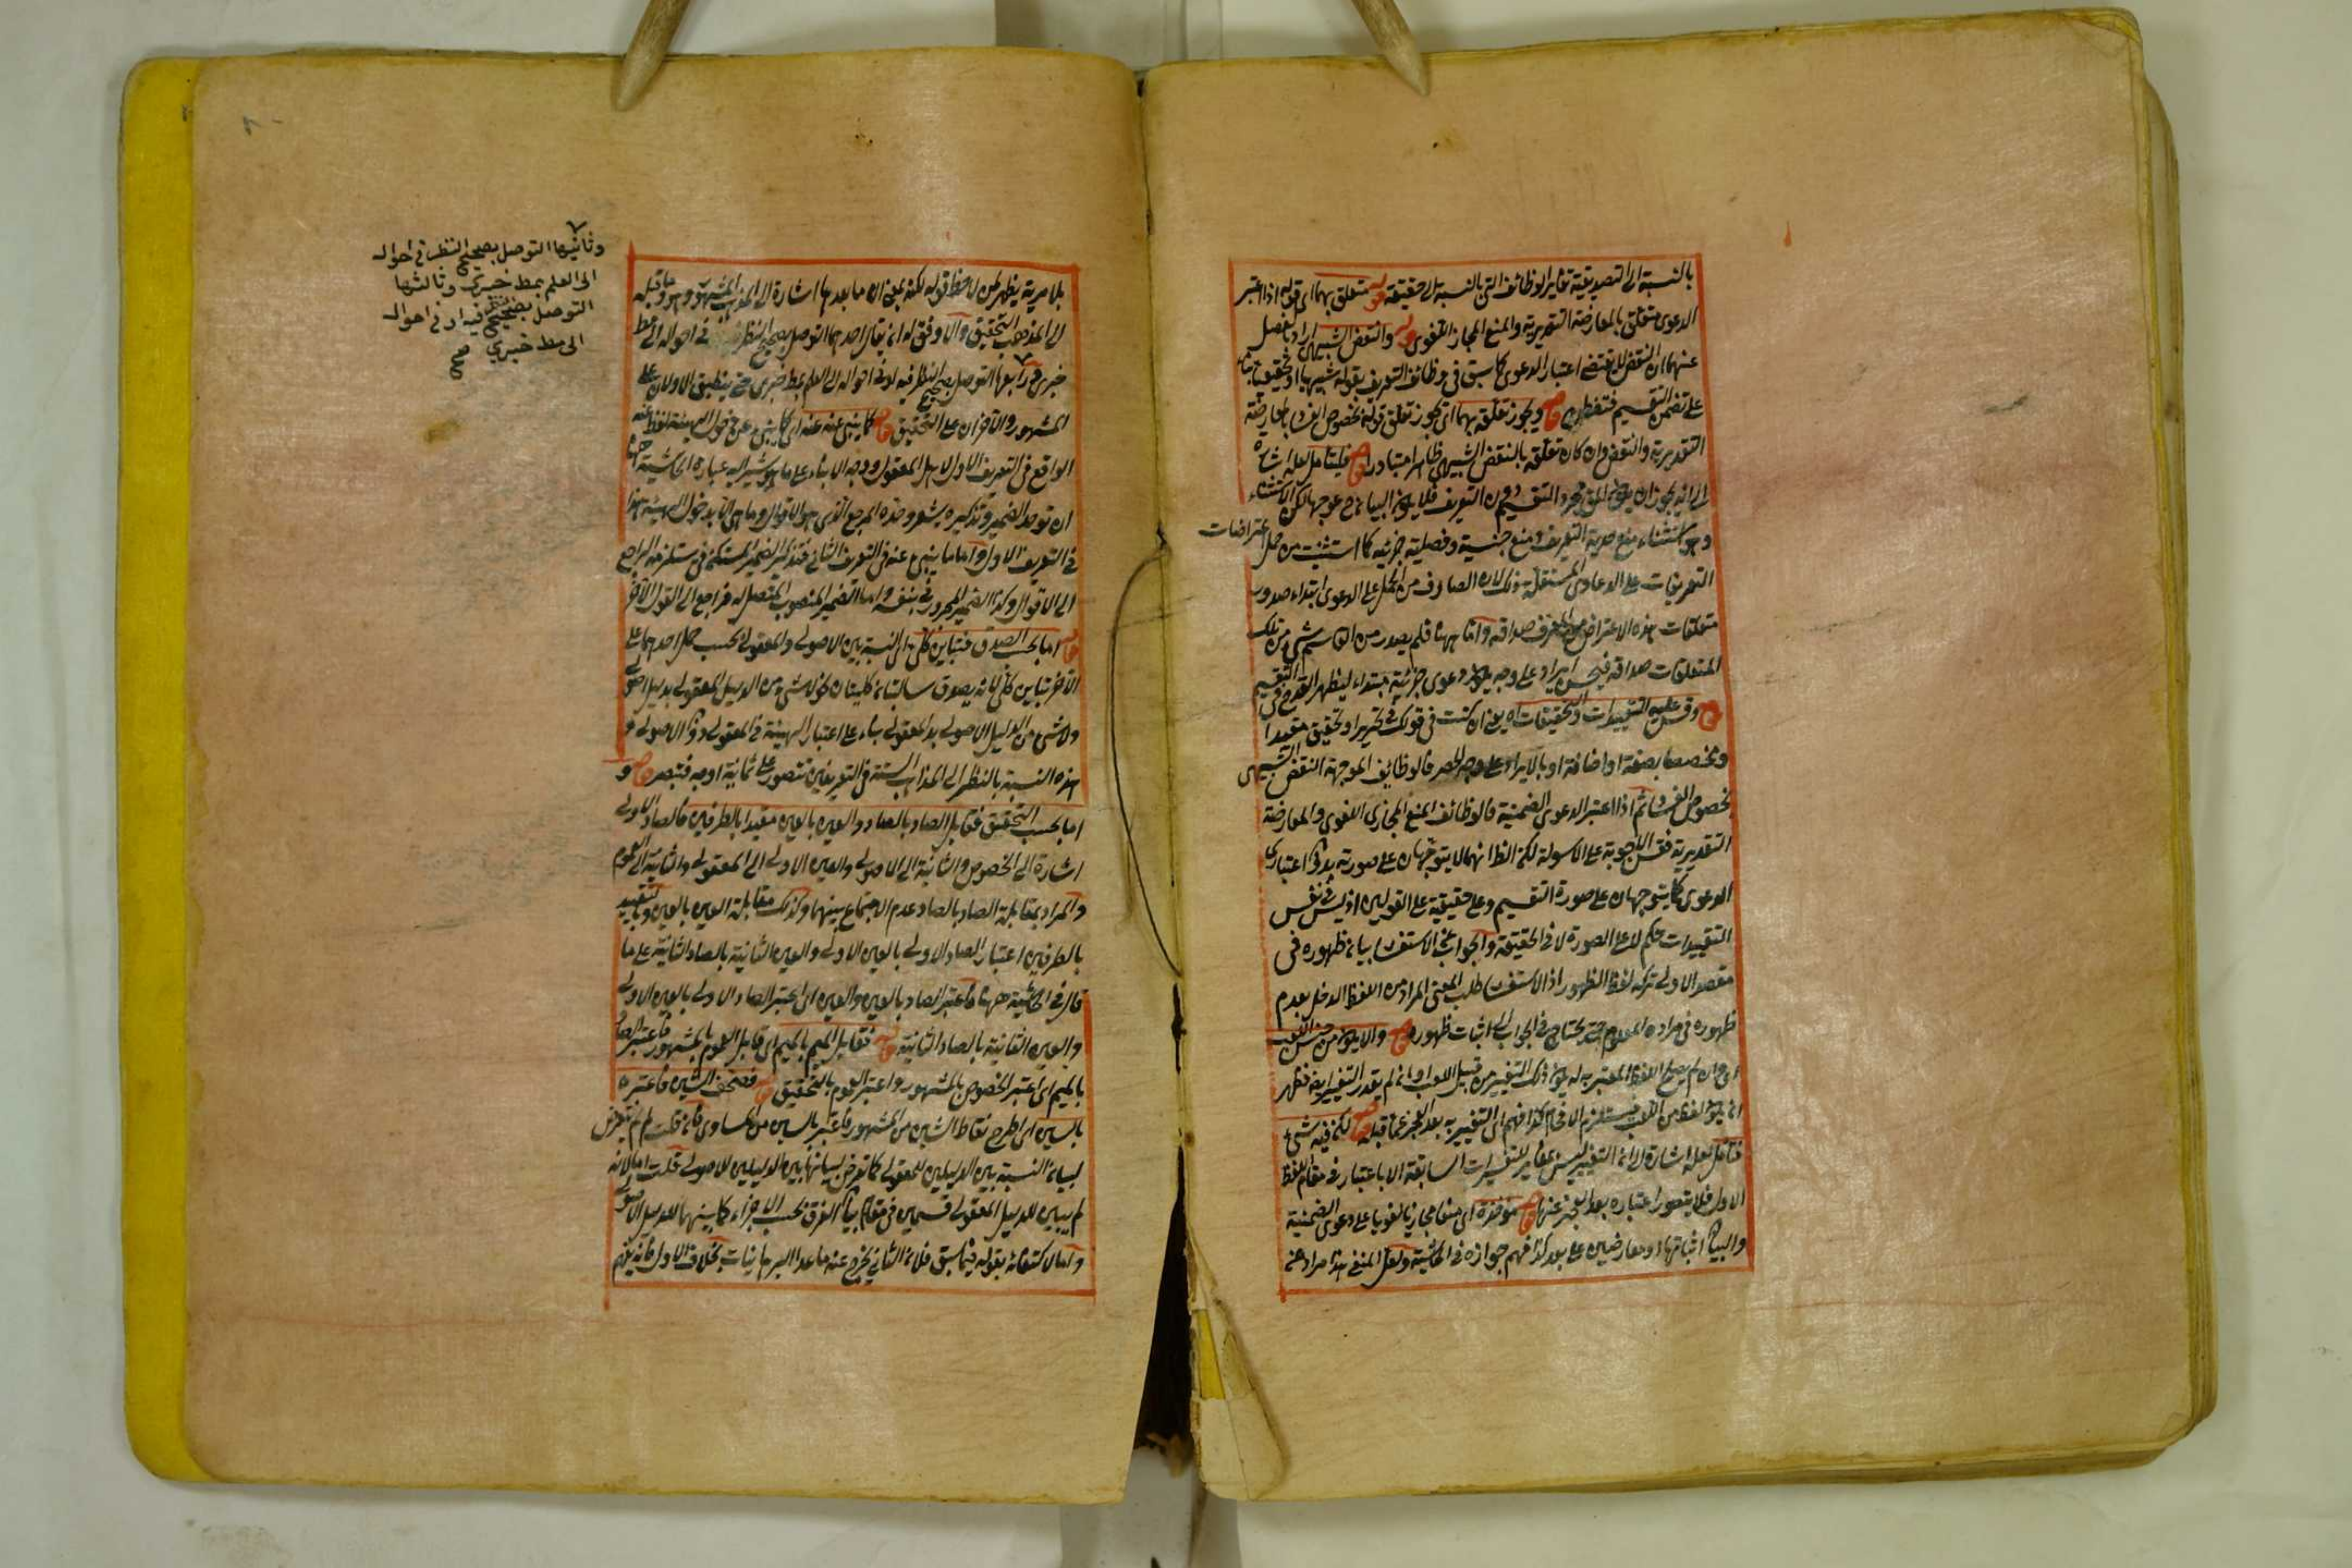 بالنسبة الى التصديقية تغاير الوظائف التى بالنسبة الى حقيقته قوله متعلق بهما اى قوله اذا اعتبر
الدعوى متعلق بالمعارضة التقديرية والمنع المجاز اللغوى والنقض الشبيهى
عنهما ان النقض لا يقتضى اعتبار الدعوى كما سبق فى وظائف التعريف بقوله شبيهيا او تحقيقيا
على تضمن التقسيم قوله ويجوز تعلقه بهما اى يجوز تعلق قوله بخصوص الفساد بالمعارضة
التقديرية والنقض وان كان تعلقه بالنقض الشبيهى ظاهرا متبادرا قوله فليتأمل لعله اشارة
الى انه يجوز ان التقسيم من التعريف
وهو استثناء منع التعريف ومنع جنسية وفصلية جزئيه كما استثنيت من جمل اعتراضات
التعريفات على الدعاوى المستقلة وذلك لان الصارف من الحمل على الدعوى ابتداء صدور
متعلقات هذه الاعتراض من المعرف صداقه واما ههنا فلم يصدر من القاسم شئ من تلك
المتعلقات صداقه على وجه دعوى جزئية مبتداء ليظهر القدح فى التقسيم
قوله وقس عليه التقييدات والتحقيقات اه يعنى ان كنت فى قولك فى تحرير او تحقيق مقيدا
ومخصصا بصفة او اضافة او بالايراد على وجه الحصر فالوظائف الموجهة النقض الشبيهى
بخصوص الفساد ثم اذا اعتبر الدعوى الضمنية فالوظائف المنع المجازى اللغوى والمعارضة
التقديرية فقس الاجوبة على الاسولة لكن الظ انهما لا يتوجهان على صورته بدون اعتبارى
الدعوى كما يتوجهان على صورة التقسيم وعلى حقيقية على القولين اذ ليس فى نفس
التقييدات حكم لا على الصورة لا فى الحقيقة والجواب عن الاستفسار بيان ظهوره فى
مقصد الاولى تركه لفظ الظهور اذ الاستفسار طلب المعنى المراد من اللفظ الدخل بعدم
ظهوره فى مراده المعلوم حتى يحتاج فى الجواب الى اثبات ظهوره قوله والا يكون من جنس اللعب
اى وان لم يصلح اللفظ المعتبر به له يكون ذلك التفسير من قبيل اللعب
من اللعب فيستلزم الافحام كذا فهم اى التفسير به بعد العجز عما قبله قوله لكن فيه شئ
فتأمل لعله اشارة الى ان التفسير ليس بمغاير للتفسيرات السابقة الا باعتبار فى مقام اللفظ
الاول فلا يتصور اعتباره بعد العجز عنها قوله اى منعا مجازيا لغويا على دعوى الضمنية
والبيان اثباتها او معارضين على بعد كذا فهم جوازه فى الحاشية ولعل المنفى هذا مراد منه
بلا مرية يظهر لمن لاحظ قوله لكنه يعنى ان ما بعدها اشارة الى المذهب المشهور وهو وما قبله
الى المذهب التحقيق والاوفق له ان يقال احدهما التوصل بصحيح النظر فى احواله الى مط
خبرى ورابعها التوصل بصحيح النظر فيه او فى احواله الى العلم بمط خبرى حتى ينطبق الاولان على
المشهور والاخران على التحقيق قوله كما ينبئ عنه اى كما ينبئ عن دخول الهيئة لفظ عنه
الواقع فى التعريف الاول لاهل المعقول ووجه الانباء على ما هو يشير اليه عبارة الحاشية ههنا
ان توحد الضمير وتذكيره يشعر وحدة المرجع الذى هو الاقوال وما هى الا بدخول الهيئة هذا
فى التعريف الاول واما ما ينبئ عنه فى التعريف الثانى فتذكير الضمير المستكن فى يستلزم الراجع
الى الاقوال وكذا الضمير المجرور فى بنفسه واما الضمير المنصوب المتصل له فراجع الى القول الاخر
قوله اما بحسب الصدق فتباين كلى اى النسبة بين الاصولى والمعقولى بحسب حمل احدهما على
الاخر تباين كلى لانه يصدق سالبتان كليتان نحو لا شئ من الدليل المعقولى بدليل اصولى
ولا شئ من الدليل الاصولى بالمعقولى بناء على اعتبار الهيئة فى المعقولى دون الاصولى و
هذه النسبة بالنظر الى المذاهب الستة فى التعريفين تتصور على ثمانية اوجه فتبصر قوله و
اما بحسب التحقيق فتقابل الصاد بالصاد والعين بالعين مقيدا بالطرفين فالصاد الاولى
اشارة الى الخصوص والثانية الى الاصولى والعين الاولى الى المعقولى والثانية الى العموم
والمراد بمقابلة الصاد بالصاد عدم الاجتماع بينهما وكذلك مقابلة العين بالعين وبالتقييد
بالطرفين اعتبار الصاد الاولى بالعين الاولى والعين الثانية بالصاد الثانية على ما
قال فى الحاشية ههنا فاعتبر الصاد بالعين والعين اى اعتبر الصاد الاولى بالعين الاولى
والعين الثانية بالصاد الثانية قوله فقابل الميم بالميم اى قابل العموم بالمشهور فاعتبر الصاد
بالميم اى اعتبر الخصوص بالمشهور واعتبر العموم بالتحقيق قوله فصحف الشين فاعتبره
بالسين اى اطرح نقاط الشين من المشهور فاعتبر بالسين من المساوى فان قلت لم لم يتعرض
لبيان النسبة بين الدليلين للمعقولى كما تعرض لبيانها بين الدليلين للاصولى قلت اما لانه
لم يبين للدليل المعقولى قسمين فى مقام بيان الفرق بحسب الاجزاء كما بينها للدليل الاصولى
واما لاكتفائه بقوله فيما سبق فلان الثانى يخرج عنه ما عدا البرهانيات بخلاف الاول فانه يفهم
وثانيها التوصل بصحيح النظر فى احواله
الى العلم بمط خبرى وثالثها
التوصل بصحيح النظر فيه او فى احواله
الى مط خبرى صح